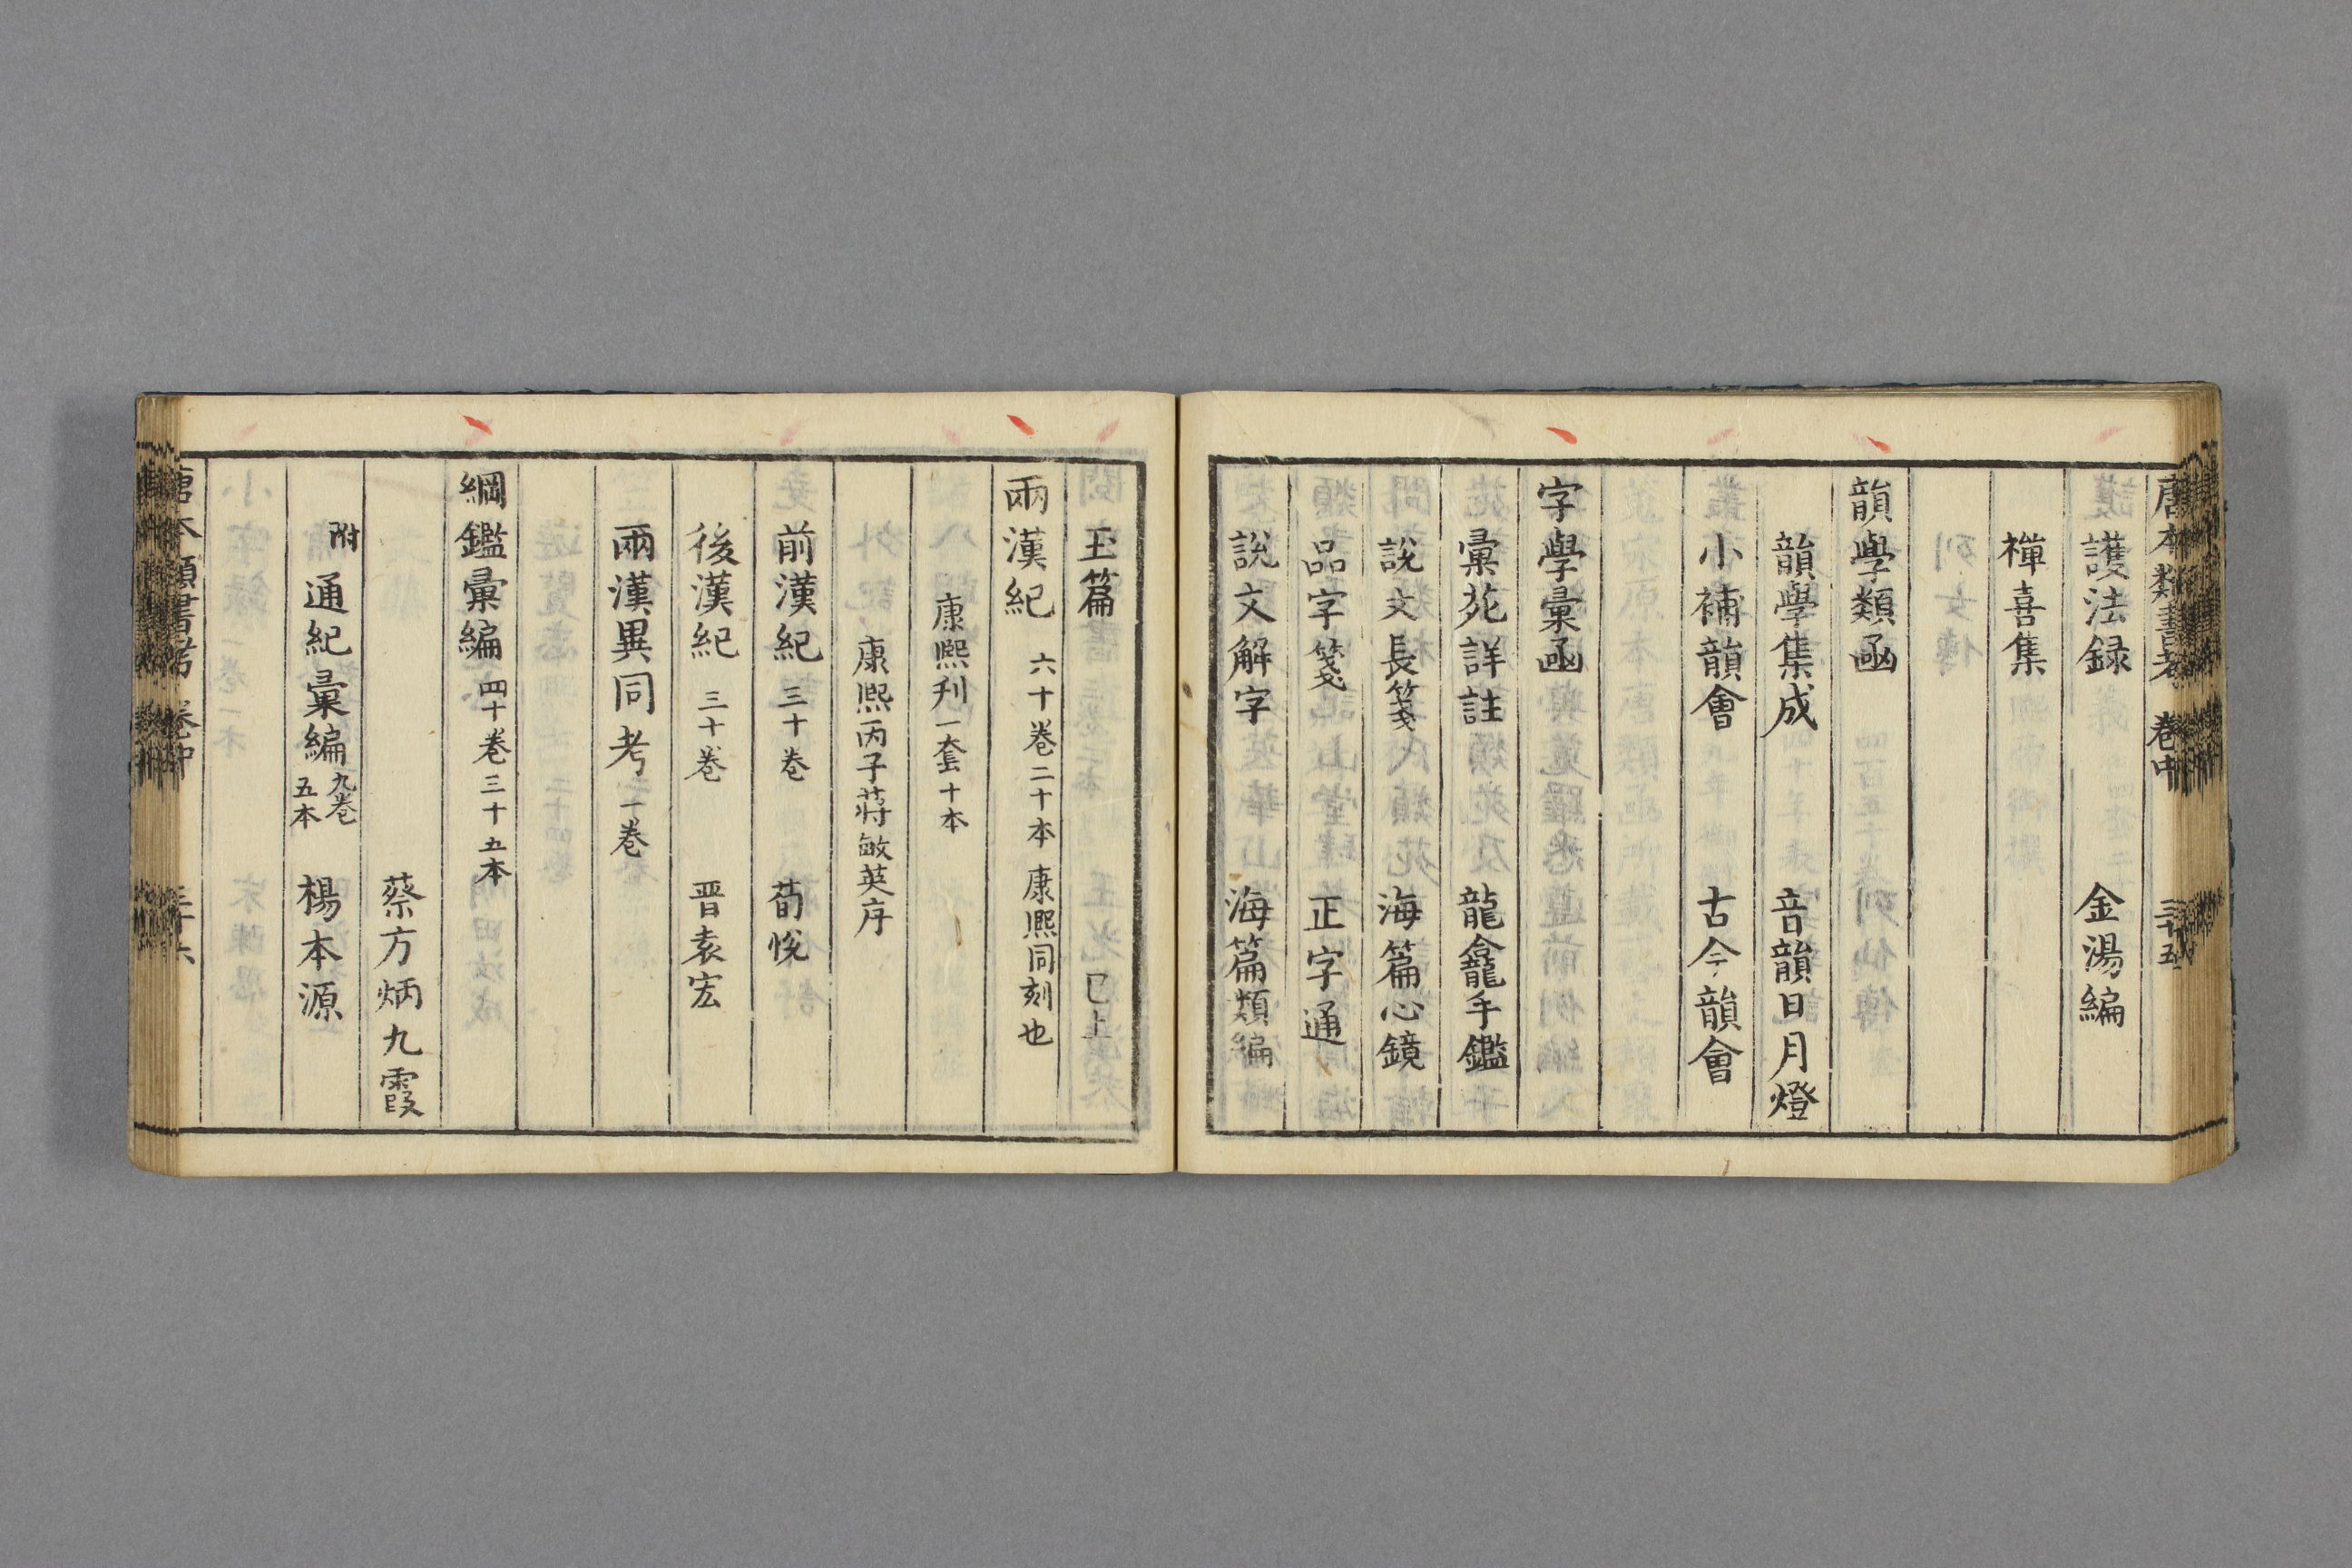 唐本類書考 卷中 三十五
護法録 金湯編
禪喜集
韻學類函
韻學集成 音韻日月燈
小補韻會 古今韻會
字學彙函
彙苑詳註 龍龕手鑑
說文長箋 海篇心鏡
品字箋 正字通
說文解字 海篇類編
玉篇 已上
兩漢紀 六十卷二十本 康熙同刻也
康熙刋一套十本
康熙丙子蔣敏英序
前漢紀 三十卷 荀悅
後漢紀 三十卷 晋袁宏
兩漢異同考 一卷
綱鑑彙編 四十卷三十五本
蔡方炳九霞
附 通紀彙編 九卷 五本 楊本源
唐本類書考 卷中